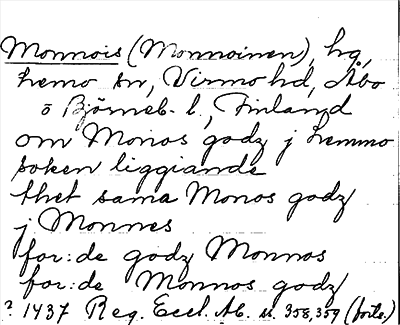 Monnois (Monnoinen), hg,
hemo sn, Virmo hd, Åbo
o Björneb. l., Finland
om Monos godz j hemmo
soken liggiande
thet sama Monos godz
j Monnes
for:de godz Monnos
for:de Monnos godz
? 1437 Reg. Eccl. Ab. ss. 358, 359 (forts.)